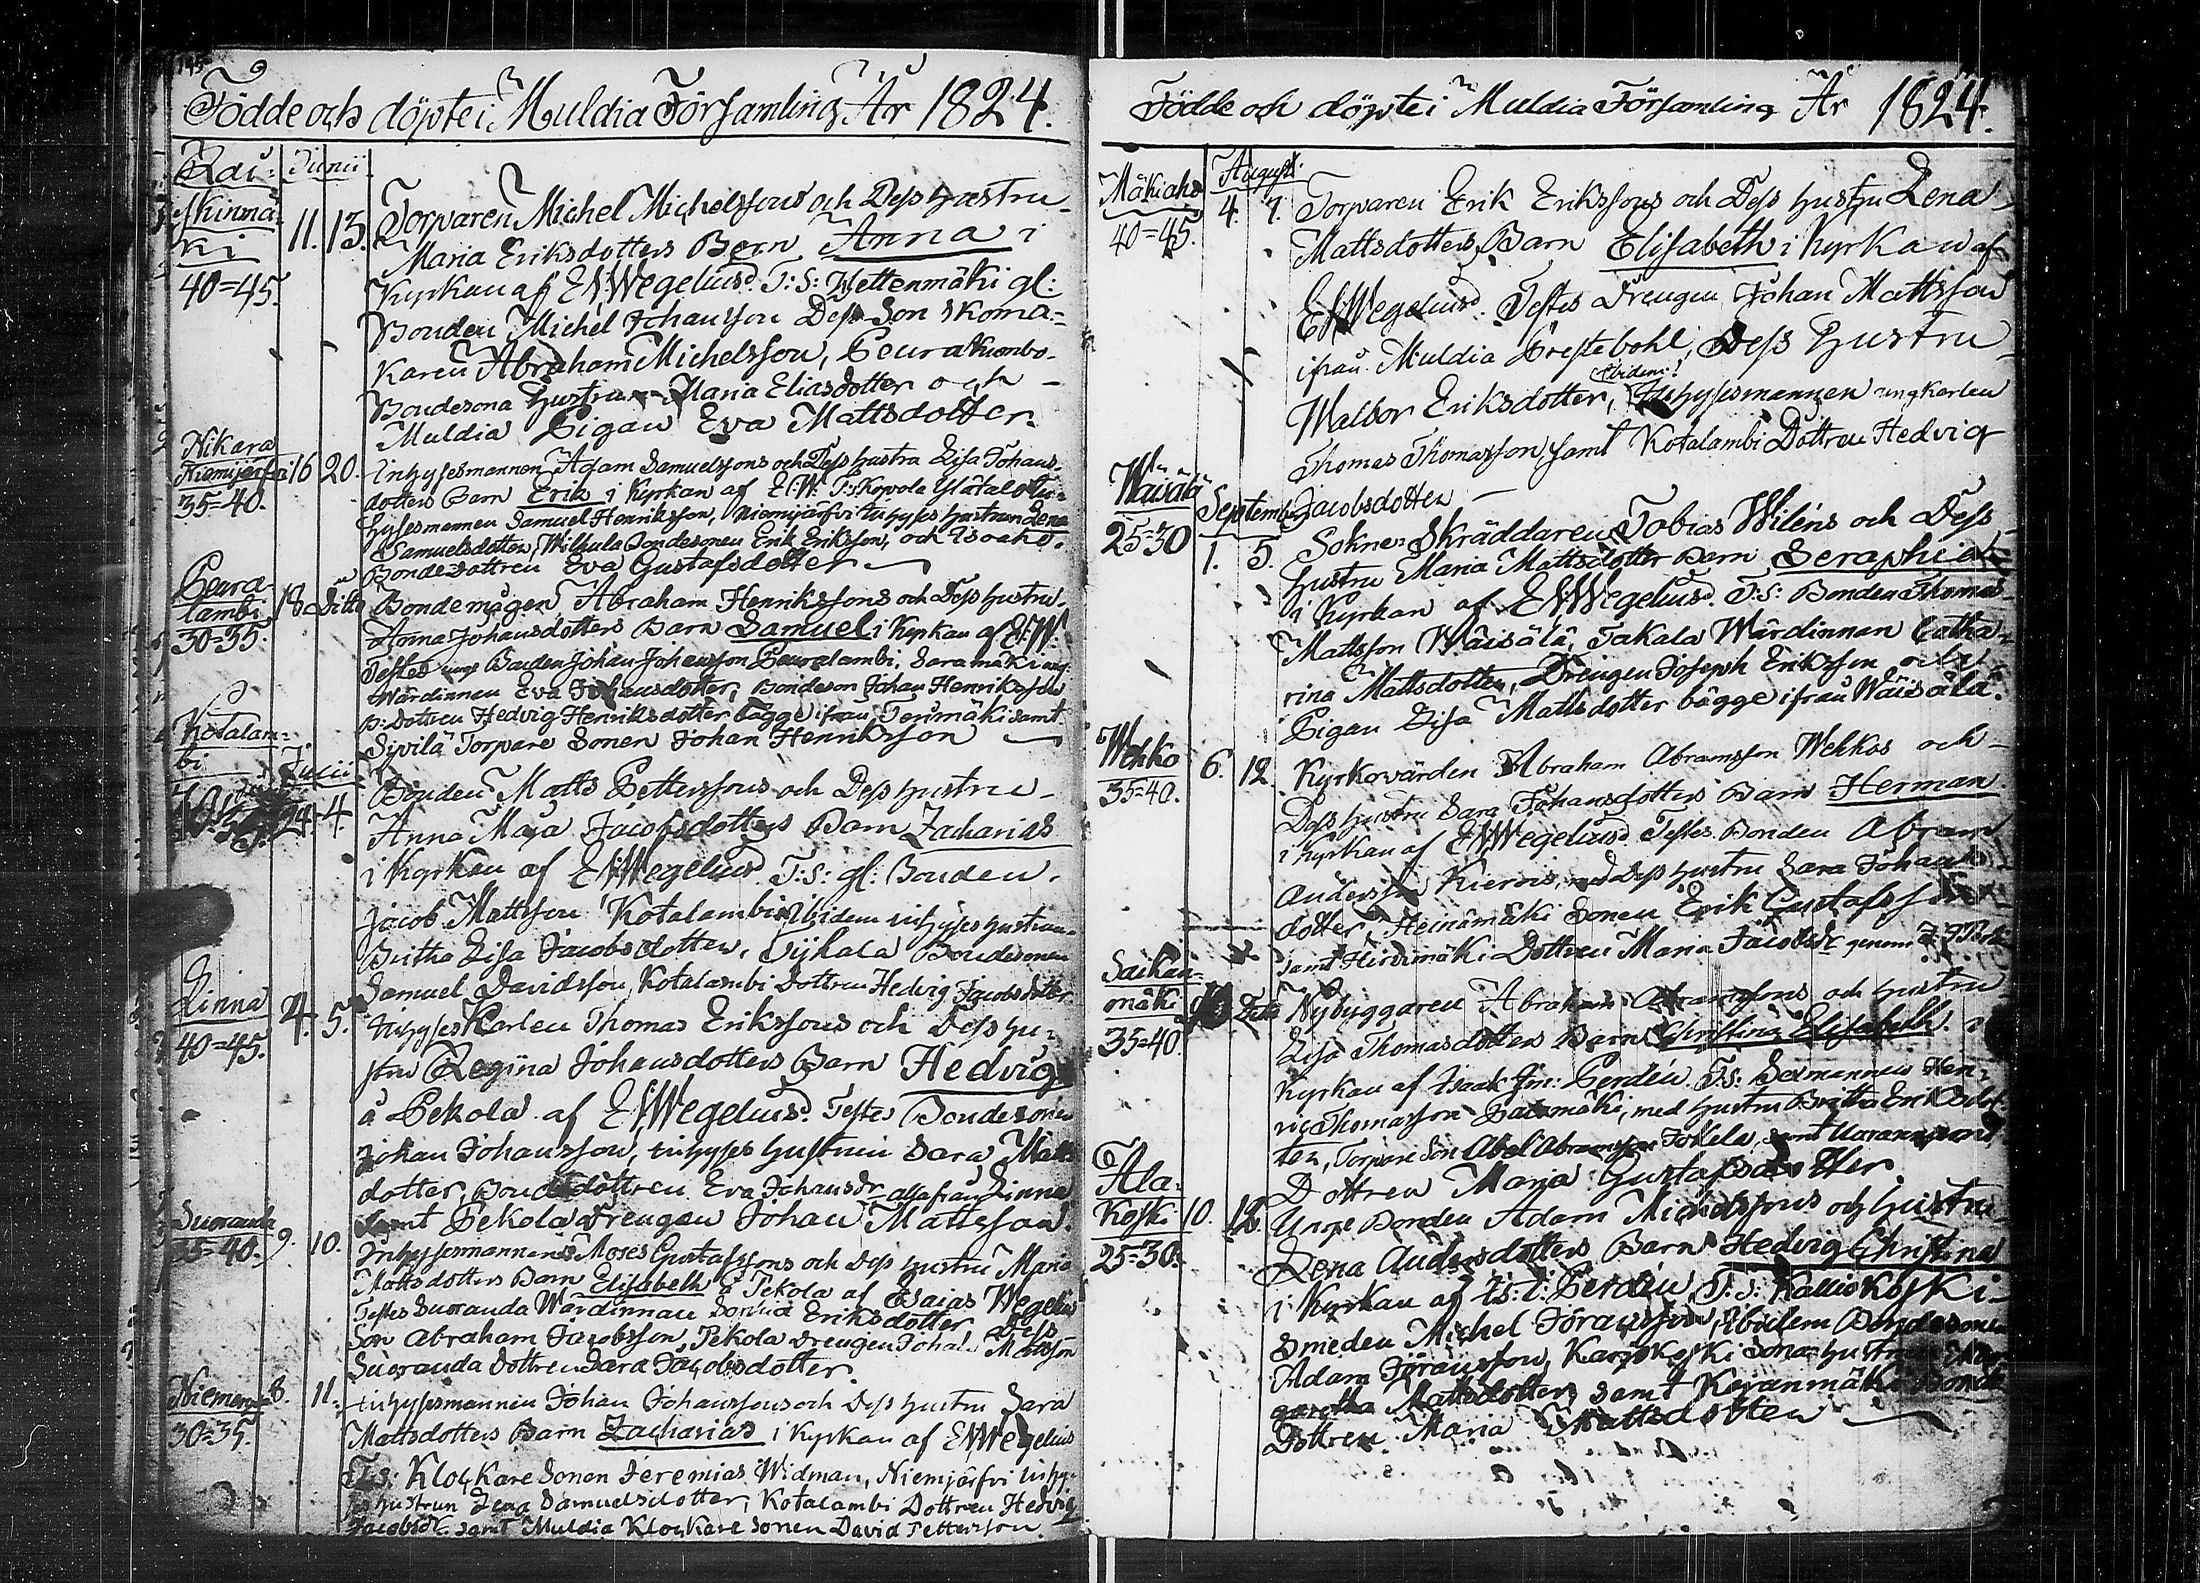 195
Födde och döpte i Muldia Församling År 1824.
Rai:
Junii
skinmä
ki
40=45.
11. 13. Torparen Michel Michelssons och Dess Hustru
Maria Eriksdotters Barn Anna i
Kyrkan af Es: Wegelius. T: S: Hettenmäki gl:
Bonden Michel Johansson Dess Son Skoma=
karen Abraham Michelsson, Peura
Bondesona Hustrun Maria Eliasdotter och
Muldia Pigan Eva Mattsdotter.
Nikara
Niemijärfvi
35=40.
16 20. Inhysesmannen Adam Samuelssons och Dess Hustru Lisa Johans
dotters Barn Erik i Kyrkan af E:W: T:s Kopola
hysesmannen Samuel Henriksson, Niemijärfvi Inhyses Hustrun Lena
Samuelsdotter, Wilkula Bondesonen Erik Eriksson, och Isoaho
Bondedottren Eva Gustafsdotter
Peura
lambi
30=35.
18 Ditto Bondemågen Abraham Henrikssons och Dess Hustru
Anna Johansdotters Barn Samuel i Kyrkan af E:W:
Testes unge Bonden Johan Johansson Peuralambi, Saramäki ung
Wärdinnan Eva Johansdotter, Bondeson Johan Henriksson
B: Dottren Hedvig Henriksdotter bägge ifrån Torimäki samt
Sipilä Torpare Sonen Johan Henriksson
Kotalam=
bi
Julii
4. Bonden Matts Petterssons och Dess Hustru
Anna Maja Jacobsdotters Barn Zacharias
i Kyrkan af Es: Wegelius T: S: gl: Bonden
Jacob Mattsson Kotalambi Ibidem inhyses Hustrun
Britha Lisa Jacobsdotter, Sijkala Bondesonen
Samuel Davidsson, Kotalambi Dottren Hedvig Jacobsdotter
Linna
40=45.
4. 5. Inhyses Karlen Thomas Erikssons och Dess Hu=
stru Regina Johansdotters Barn Hedvig
å Pekola af Es: Wegelius. Testes Bondesonen
Johan Johansson, inhyses hustrun Sara Matts
dotter, Bondedottren Eva Johansdr alla från Linna
samt Pekola Drengen Johan Mattsson.
Suoranda
35=40.
9. 10. Inhysesmannens Moses Gustafssons och Dess Hustru Maria
Mattsdotters Barn Elisabeth å Pekola af Esaias Wegelius
Testes Suoranda Wärdinnan Eriksdotter Dess
Son Abraham Jacobsson, Pekola Drengen Johan Mattsson
Suoranda Dottren Sara Jacobsdotter.
Niemen
30=35.
8. 11. Inhysesmannen Johan Johanssons och Dess Hustru Sara
Mattsdotters Barn Zacharias i Kyrkan af Es: Wegelius
T: s: Klockare Sonen Jeremias Widman, Niemjärfvi Inhy=
ses Hustrun Lena Samuelsdotter, Kotalambi Dottren Hedvig
Jacobsdr samt Muldia Klockare Sonen David Pettersson.
Födde och döpte i Muldia Församling År 1824.
Mäkiaho
40=45.
August.
4. 7. Torparen Erik Erikssons och Dess Hustru Lena
Mattsdotters Barn Elisabeth i Kyrkan af
Es: Wegelius. Testes Drengen Johan Mattsson
ifrån Muldia Prestebohl, Dess Hustru
Walbor Eriksdotter, Ibidem: Inhysesmannen ungkarlen
Thomas Thomasson, samt Kotalambi Dottren Hedvig
Jacobsdotter
Wäisälä
25=30
September
1. 5. Sokne Skräddaren Tobias Wiléns och Dess
Hustru Maria Mattsdotter Barn Seraphia
i Kyrkan af Es: Wegelius. T: S: Bonden Thomas
Mattsson Wäisälä, Takala Wärdinnan Catha=
rina Mattsdotter, Drengen Joseph Eriksson och
Pigan Lisa Mattsdotter bägge ifrån Wäisälä.
Wehko
35=40.
6. 12. Kyrkowärden Abraham Abramsson Wehkos och
Dess Hustru Sara Johansdotters Barn Herman
i Kyrkan af Es: Wegelius. Testes Bonden Abram
Andersson med Dess Hustru Sara Johans
dotter, Heinämäki Sonen Erik Gustafsson
samt Hirsimäki Dottren Maria Jacobsdr genom
Saikan
mäki
35=40.
Dito Nybyggaren Abraham Abramssons och Hustru
Lisa Thomasdotters Barn Christina Elisabeth. i
Kyrkan af Isaak Perdén. T:s: Sexmannen Hen=
ric Thomasson med Hustru Britha Eriks
ter, Torpare Son Abel Abramsson Jokela, samt
Dottren Maria Gustafsdotter.
Ala:
koski
25=30.
10. 12. Unge Bonden Adam Michelssons och Hustru
Lena Andersdotters Barn Hedvig Christina
i Kyrkan af Is: Perdén, T: S: Kalliokoski
Smeden Michel Jöransson, Ibidem Bondesonen
Adam Jöransson, Karjokoski Sona Hustrun
garetha Mattsdotter, samt Keranmäki Bonde
Dottren Maria Mattsdotter